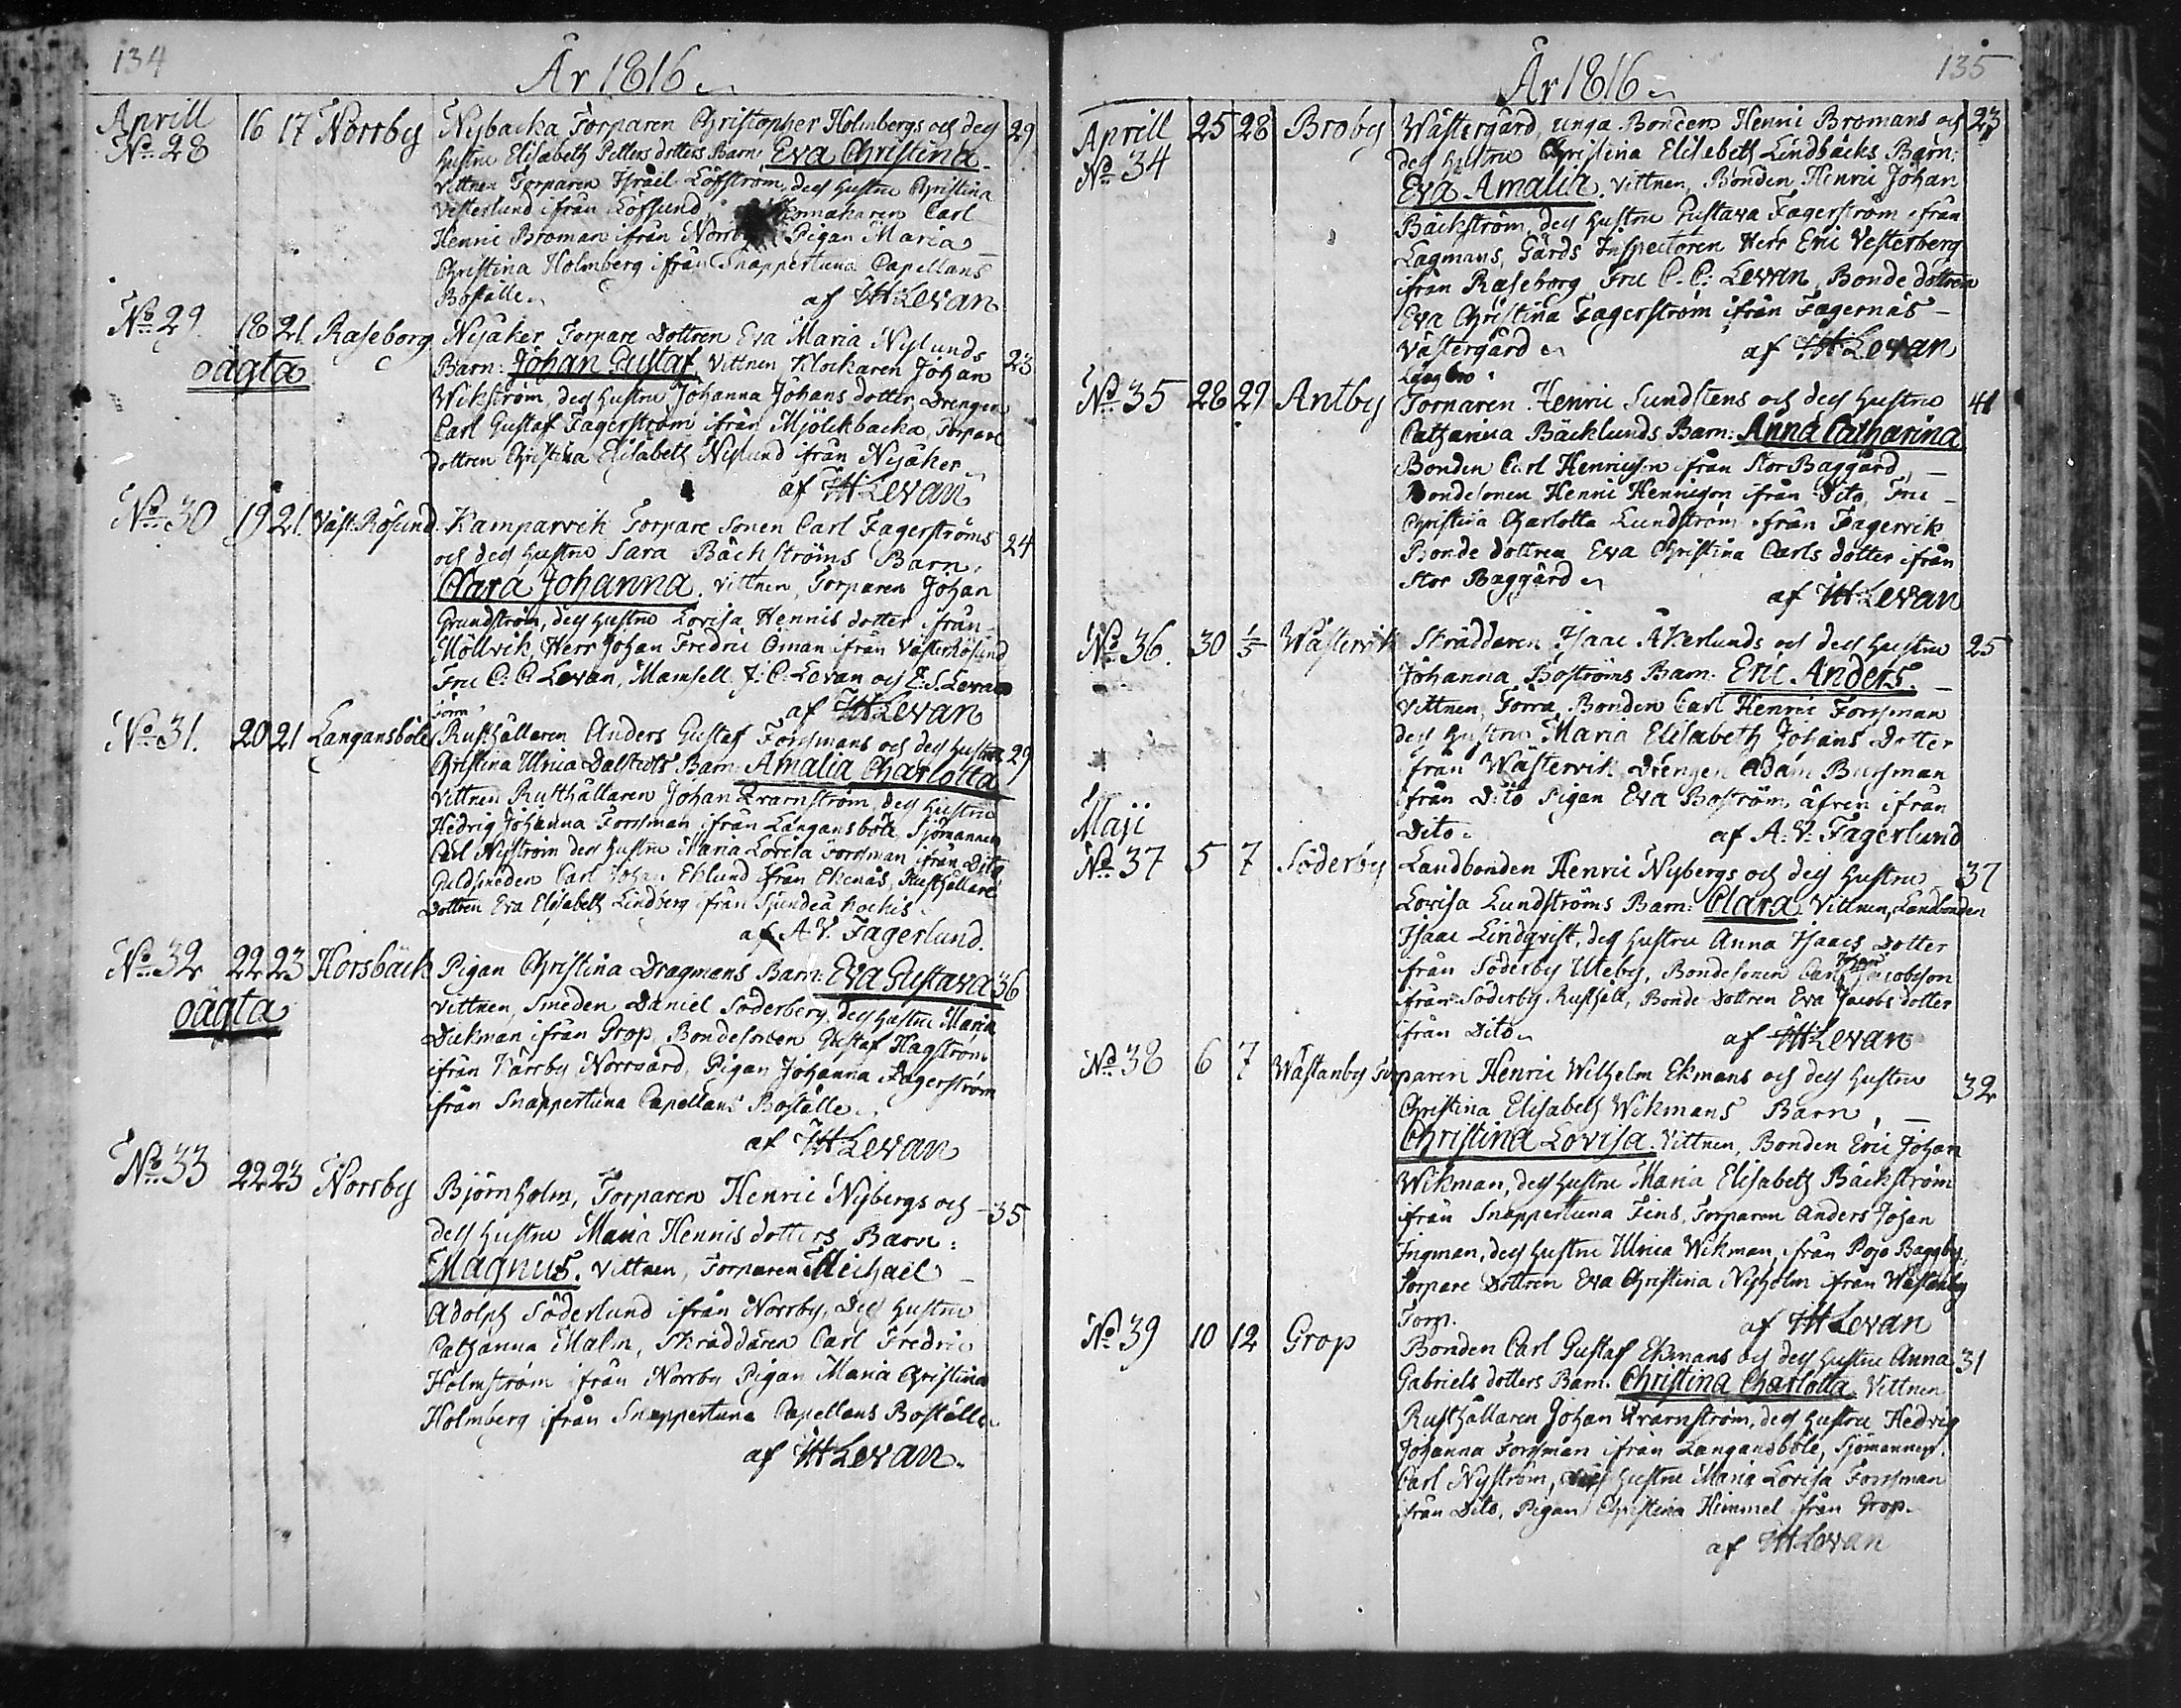 134
År 1816
Aprill
No 28 16 17 Norrby Nybacka Torparen Christopher Holmbergs och dess 29
hustru Elisabeth Petters dotters Barn: Eva Christina.
Vittnen Torparen Israel Löfström, dess hustru Christina
Vesterlund ifrån Löfsund, Skomakaren Carl
Henric Broman ifrån Norrby Pigan Maria
Christina Holmberg ifrån Snappertuna Capellans
Boställe af HLevan
No 29 18 21 Raseborg Nyåker Torpare Dottren Eva Maria Nylunds 23
oägta
Barn: Johan Gustaf. Vittnen Klockaren Johan
Wikström, dess hustru Johanna Johans dotter, Drengen
Carl Gustaf Fagerström ifrån Mjölckbacka, Torpare
dottren Christina Elisabeth Nylund ifrån Nyåker
af HLevan
No 30 19 21 Väst. Rösund Kamparvik Torpare Sonen Carl Fagerströms 24
och dess hustru Sara Bäckströms Barn:
Clara Johanna. Vittnen, Torparen Johan
Grundström, dess hustru Lovisa Henrics dotter ifrån
Möllvik, Herr Johan Fredric Öman ifrån Västerrösund
Fru C. C. Levan, Mamsell J: C. Levan och E. S. Levan
af HLevan
Torra
No 31. 20 21 Langansböle Rusthållaren Anders Gustaf Forssmans och dess hustru 29
Christina Ulrica Dalstedts Barn: Amalia Charlotta
Vittnen Rusthållaren Johan Qvarnström, dess hustru
Hedvig Johanna Forssman ifrån Langansböle, Sjömannen
Carl Nyström dess hustru Maria Lovisa Forssman ifrån Dito
Guldsmeden Carl Johan Eklund ifrån Ekenäs, Rusthållare
Dottren Eva Elisabeth Lindberg ifrån Sjundeå Kockis
af A. V. Fagerlund.
No 32 22 23 Horsbäck Pigan Christina Dragmans Barn: Eva Gustava 36
oägta
Vittnen, Smeden Daniel Söderberg, dess hustru Maria
Dickman ifrån Grop, Bondesonen Gustaf Hagström
ifrån Vårrby Norrgård, Pigan Johanna Fagerström
ifrån Snappertuna Capellans Boställe
af HLevan
No 33 22 23 Norrby Björnholm, Torparen Henric Nybergs och 35
dess hustru Maria Henrics dotters Barn:
Magnus. Vittnen, Torparen Michael
Adolph Söderlund ifrån Norrby, Dess hustru
Catharina Malm, Skräddaren Carl Fredric
Holmström ifrån Norrby Pigan Maria Christina
Holmberg ifrån Snappertuna Capellans Boställe
af HLevan.
135
År 1816
Aprill
No 34 25 28 Broby Västergård, unga Bonden Henric Bromans och 23
dess hustru Christina Elisabeth Lindbäcks Barn:
Eva Amalia. Vittnen, Bonden Henric Johan
Bäckström, dess hustru Gustava Fagerström ifrån
Lagmans, Gårds Inspectoren Herr Eric Vesterberg
ifrån Raseborg, Fru C. C. Levan, Bonde dottren
Eva Christina Fagerström ifrån Fagernäs
Västergård af HLevan
No 35 28 29 Antby Torparen Henric Sundstens och dess hustru 41
Catharina Bäcklunds Barn: Anna Catharina
Bonden Carl Henricsson ifrån Stor Baggård,
Bondesonen Henric Henricsson ifrån Dito, Fru
Christina Charlotta Lundström ifrån Fagervik
Bonde dottren Eva Christina Carls dotter ifrån
Stor Baggård
af HLevan
No 36. 30 1/5 Västervik Skräddaren Isaac Åkerlunds och dess hustru 25
Johanna Boströms Barn: Eric Anders.
Vittnen, Förra Bonden Carl Henric Forssman
dess hustru Maria Elisabeth Johans Dotter
ifrån Västervik, Drengen Adam Bursman
ifrån Dito Pigan Eva Boström, äfven ifrån
Dito. af A. V. Fagerlund
Maji
No 37 5 7 Söderby Landbonden Henric Nybergs och dess hustru 37
Lovisa Lundströms Barn: Clara. Vittnen, Landbonden
Isaac Lindqvist, dess hustru Anna Isaacs Dotter
ifrån Söderby Uteby, Bondesonen Carl Johan Jacobsson
ifrån Söderby Rusthåll, Bonde Dottren Eva Jacobs dotter
ifrån Dito af HLevan
No 38 6 7 Västanby Torparen Henric Wilhelm Ekmans och dess hustru 32
Christina Elisabeth Wikmans Barn,
Christina Lovisa. Vittnen, Bonden Eric Johan
Wikman, dess hustru Maria Elisabeth Bäckström
ifrån Snappertuna Fins, Torparen Anders Johan
Ingman, dess hustru Ulrica Wikman, ifrån Pojo Baggby,
Torpare Dottren Eva Christina Nyholm ifrån Västanby
Torp. af HLevan
No 39 10 12 Grop Bonden Carl Gustaf Ekmans och dess hustru Anna 31
Gabriels dotters Barn: Christina Charlotta. Vittnen
Rusthållaren Johan Qvarnström, dess hustru Hedvig
Johanna Forssman ifrån Langansböle, Sjömannen
Carl Nyström, dess hustru Maria Lovisa Forssman
ifrån Dito, Pigan Christina Himmel ifrån Grop.
af HLevan